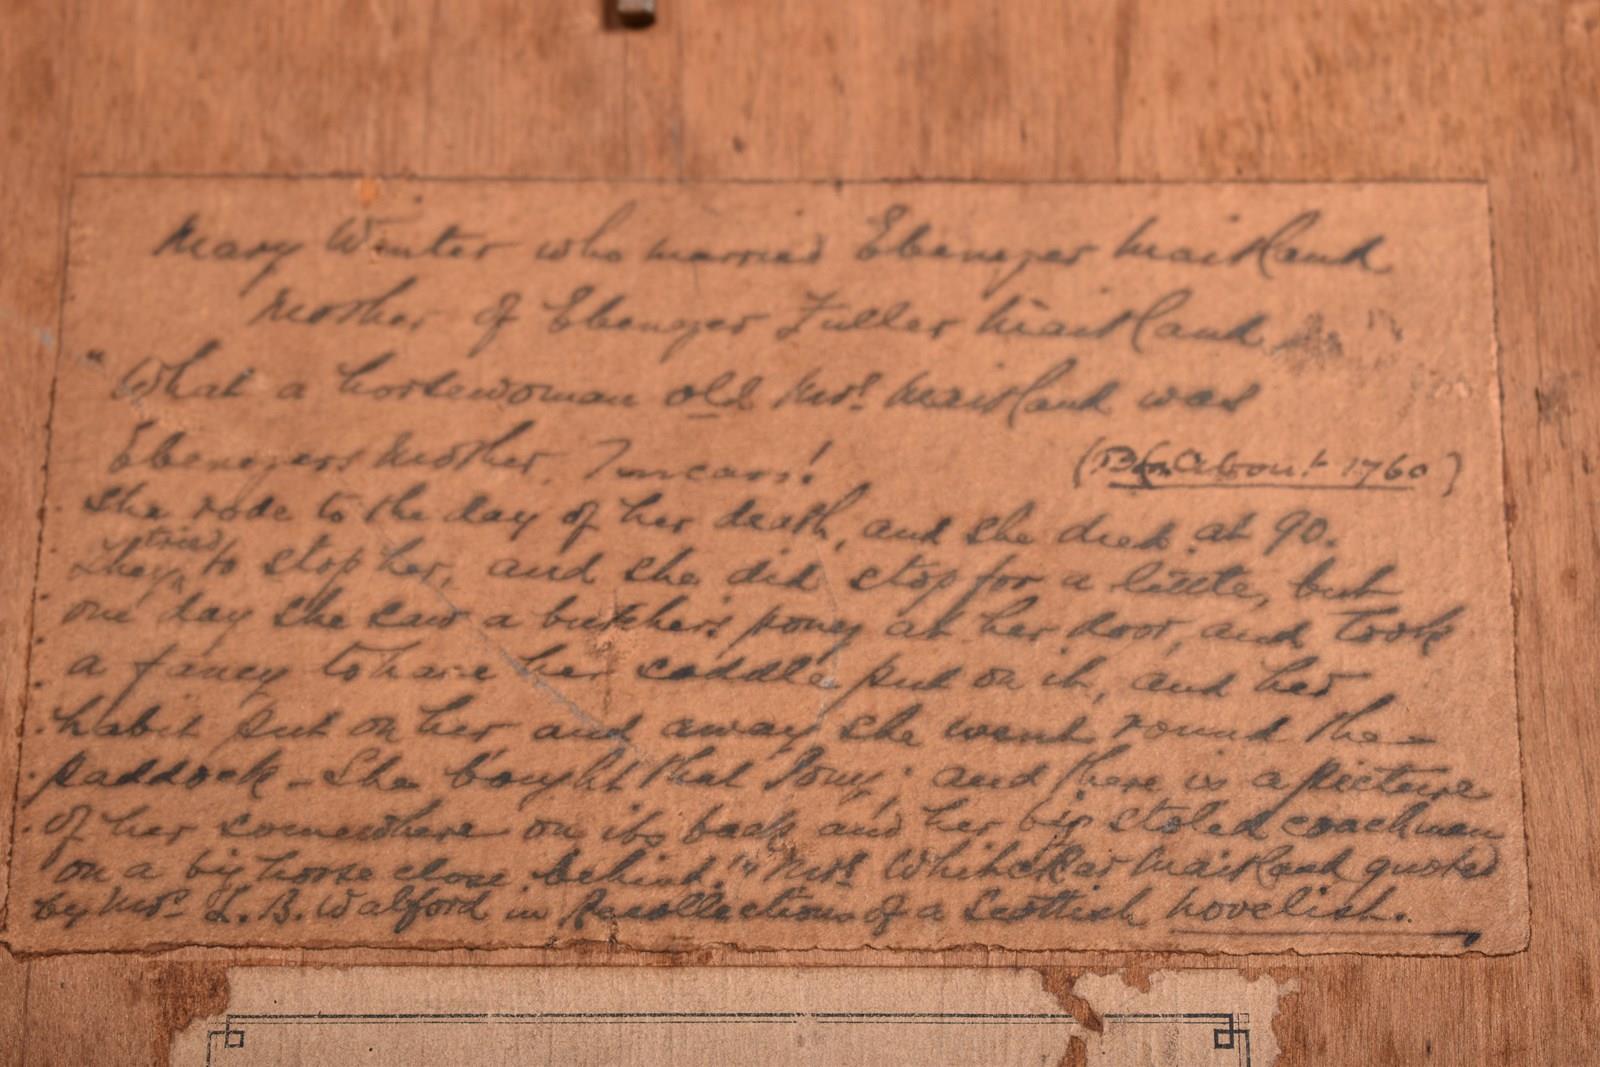 Mary Winter who married Ebenezer Maitland
Mother of Ebenezer Fuller Maitland
"What a horsewoman old Mrs. Maitland was
Ebenezers Mother, I mean!
(Born About 1760)
She rode to the day of her death, and she died at 90.
They tried to stop her, and she did stop for a little, but
one day she saw a butcher's pony at her door, and took
a fancy to have her saddle put on it, and her
habit put on her and away she went round the
paddock - She bought that Pony; and there is a picture
of her somewhere on its back and her big stolid coachman
on a big horse close behind." Mrs. Whitaker Maitland quoted
by Mrs. L. B. Walford in Recollections of a Scottish Novelist.